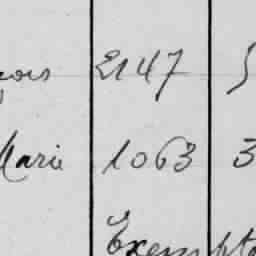 çois 2147 5
Marie 1063 3
Exempt